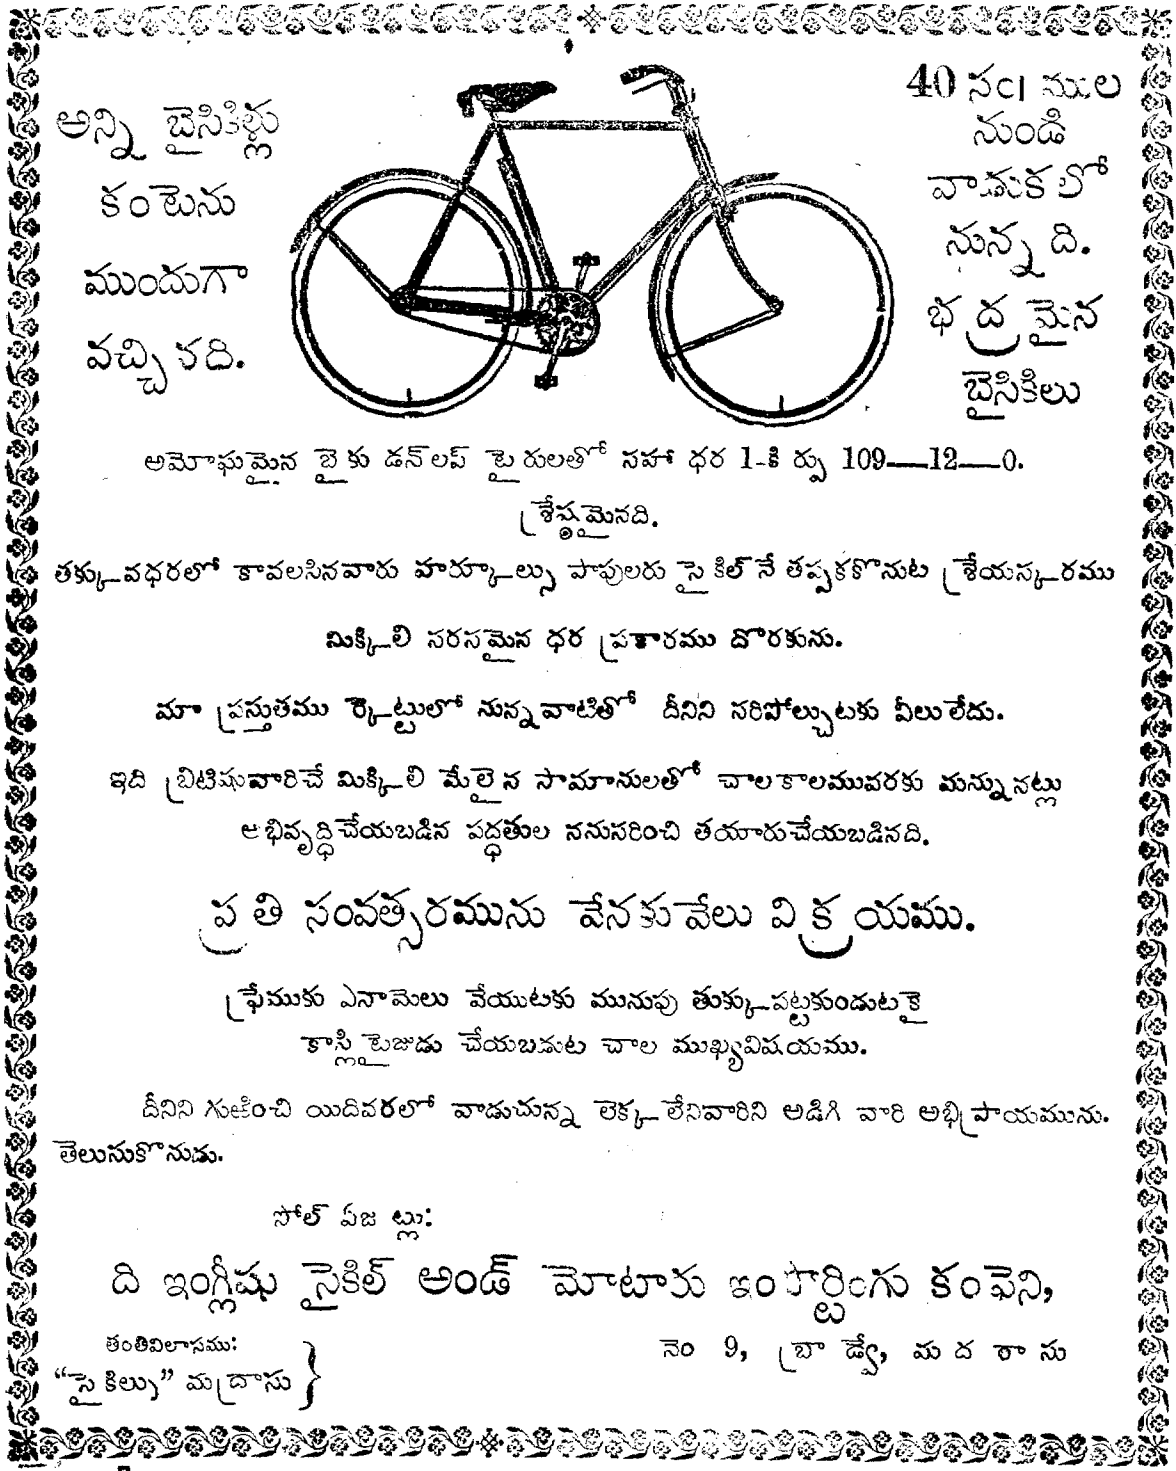 అన్ని బైసికిళ్లు
కంటెను
ముందుగా
వచ్చినది.
40 సం॥ ముల
నుండి
వాడుకలో
నున్నది.
భద్రమైన
బైసికిలు
అమోఘమైన బైకు డన్‌లప్ టైరులతో సహా ధర 1-కి ర్పు 109—12—0.
శ్రేష్ఠమైనది.
తక్కువధరలో కావలసినవారు హర్క్యూల్సు పాపులరు సైకిల్‌నే తప్పకకొనుట శ్రేయస్కరము
మిక్కిలి సరసమైన ధర ప్రకారము దొరకును.
మా ప్రస్తుతము ర్కెట్టులో నున్నవాటితో దీనిని సరిపోల్చుటకు వీలులేదు.
ఇది బ్రిటిషువారిచే మిక్కిలి మేలైన సామానులతో చాలకాలమువరకు మన్నునట్లు
అభివృద్ధిచేయబడిన పద్ధతుల ననుసరించి తయారుచేయబడినది.
ప్రతి సంవత్సరమును వేనకువేలు విక్రయము.
ఫ్రేముకు ఎనామెలు వేయుటకు మునుపు తుక్కుపట్టకుండుటకై
కాస్లిటైజుడు చేయబడుట చాల ముఖ్యవిషయము.
దీనిని గుఱించి యిదివరలో వాడుచున్న లెక్కలేనివారిని అడిగి వారి అభిప్రాయమును.
తెలుసుకొనుడు.
సోల్ ఏజ ట్లు:
ది ఇంగ్లీషు సైకిల్ అండ్ మోటారు ఇంపార్టింగు కంపెని,
తంతివిలాసము:
"సైకిల్సు" మద్రాసు
నెం 9, బ్రాడ్వే, మదరాసు